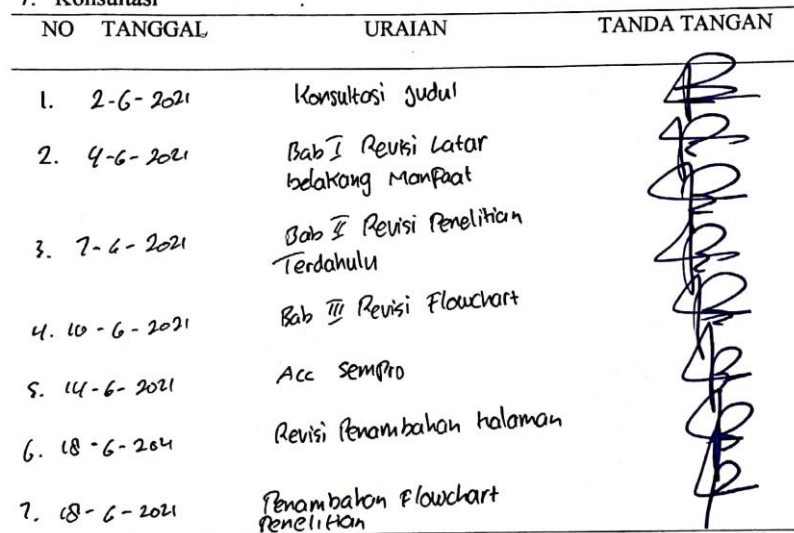 7. Konsultasi
NO TANGGAL URAIAN TANDA TANGAN
1. 2-6-2021 Konsultasi Judul
2. 4-6-2021 Bab I Revisi Latar
belakang Manfaat
3. 7-6-2021 Bab II Revisi Penelitian
Terdahulu
4. 10-6-2021 Bab III Revisi Flowchart
5. 14-6-2021 Acc Sempro
6. 18-6-2021 Revisi Penambahan halaman
7. 18-6-2021 Penambahan Flowchart
Penelitian